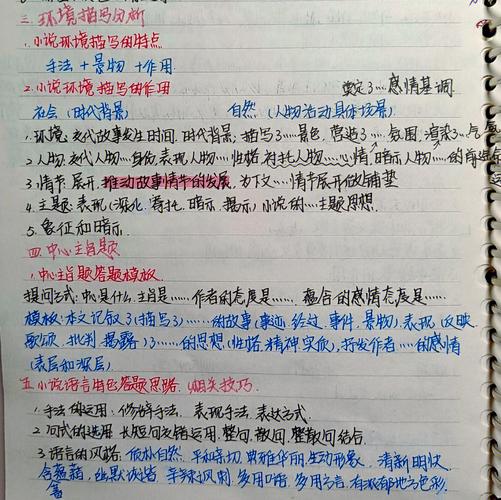 三.环境描写分析
1.小说环境描写的特点
手法+景物+作用
2.小说环境描写的作用 奠定了……感情基调
社会(时代背景) 自然(人物活动具体场景)
1.环境:交代故事发生时间,时代背景;描写了……景色,营造了……氛围,渲染了……气氛
2.人物:交代人物……身份,表现人物……性格,衬托人物……心情,暗示人物……的命运
3.情节展开,推动故事情节的发展,为下文……情节展开做铺垫
4.主题:表现(深化,寄托,暗示,揭示)小说的……主题思想
5.象征和暗示
四.中心主旨题
1.中心主旨题答题模板
提问方式:中心是什么,主旨是……作者的态度是……蕴含的感情态度是……
模板:本文记叙了(描写了)……的故事(事迹,经过,事件,景物),表现(反映,
歌颂,批判,揭露)了……的思想(性格,精神,实质),抒发作者……的感情
(表层和深层)
五.小说语言特色答题思路,相关技巧
1.手法的运用:修辞手法,表现手法,表达方式
2.句式的选用:长短句交错运用,整句,散句,整散句结合
3.语言的风格:质朴自然,平和亲切,典雅华丽,生动形象,清新明快,
含蓄蕴藉,幽默诙谐,辛辣讽刺,多用口语,多用方言,有浓郁地方色彩